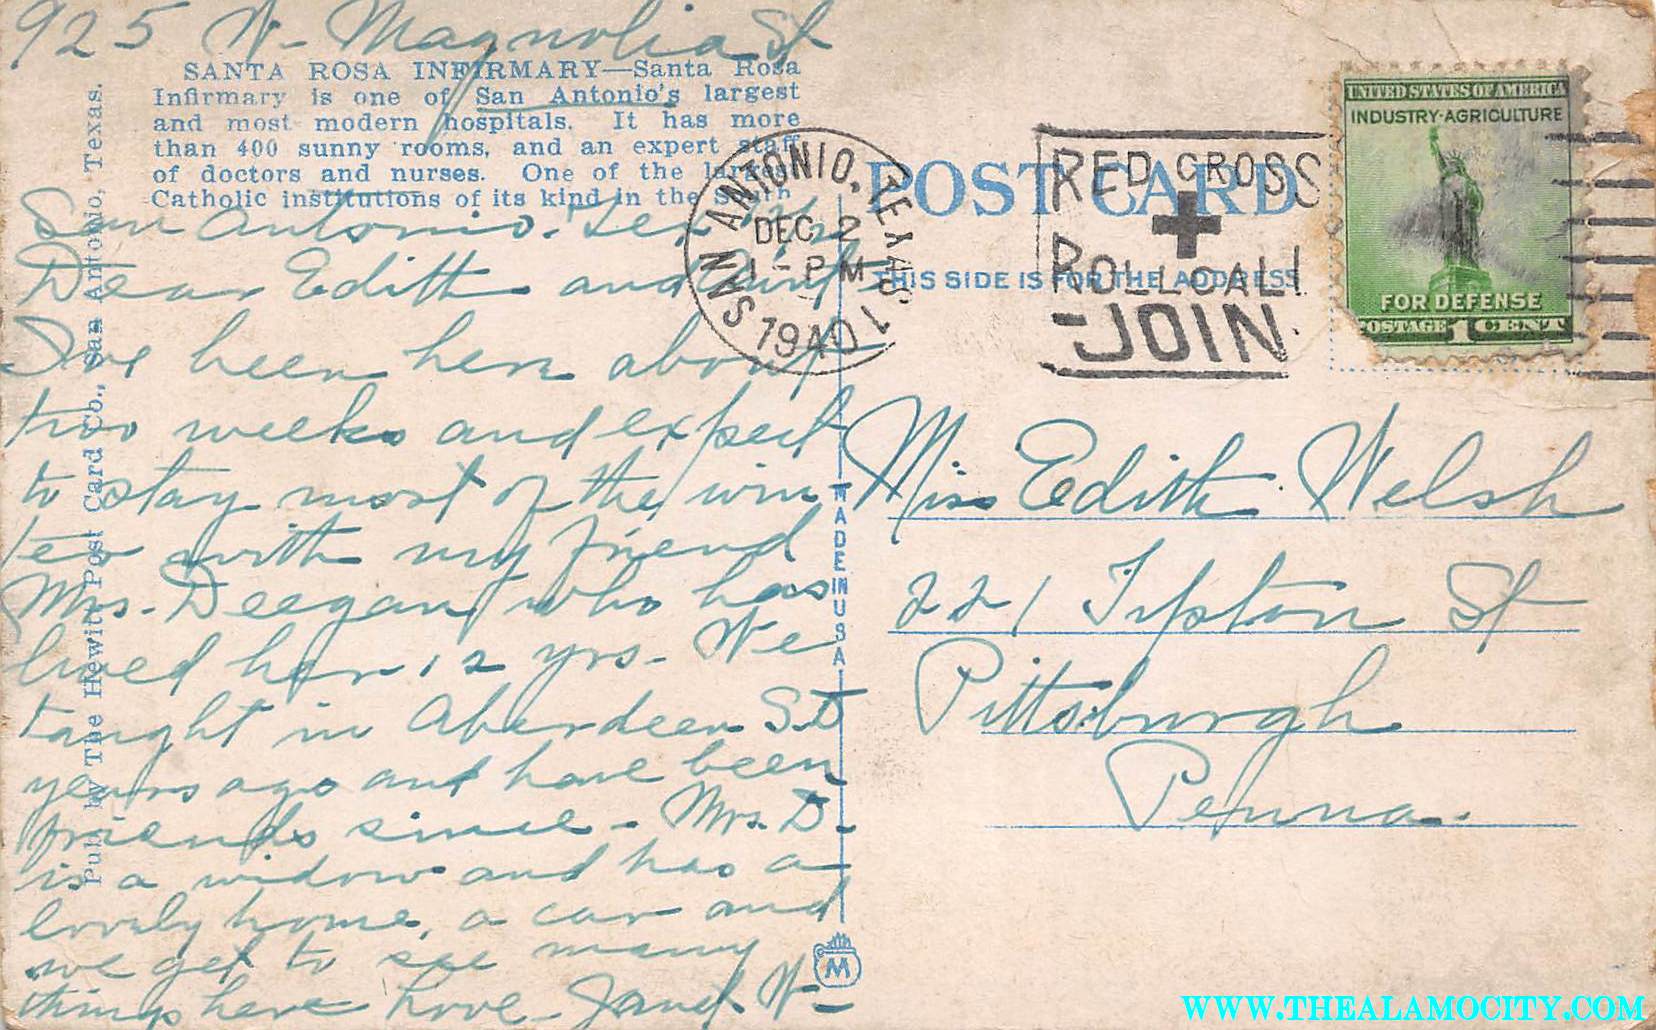 925 W- Magnolia St
SANTA ROSA INFIRMARY—Santa Rosa
Infirmary is one of San Antonio's largest
and most modern hospitals. It has more
than 400 sunny rooms, and an expert staff
of doctors and nurses. One of the largest
Catholic institutions of its kind in the South
San Antonio. Tex
Dear Edith and Aunt
I've been here about
two weeks and expect
to stay most of the win
ter with my friend
Mrs. Deegan who has
lived here 12 yrs- We
taught in Aberdeen S.D
years ago and have been
friends since- Mrs. D-
is a widow and has a
lovely home, a car and
we get to see many
things here Love- W-
Pub. by The Hewitt Post Card Co., San Antonio, Texas.
POST CARD
THIS SIDE IS FOR THE ADDRESS
MADE IN USA
M
SAN ANTONIO, TEXAS 1
DEC 2
1-PM
1940
RED CROSS
ROLL CALL
-JOIN
UNITED STATES OF AMERICA
INDUSTRY·AGRICULTURE
FOR DEFENSE
POSTAGE 1 CENT
Miss Edith Welsh
221 Tipton St
Pittsburgh
Penna.
WWW.THEALAMOCITY.COM